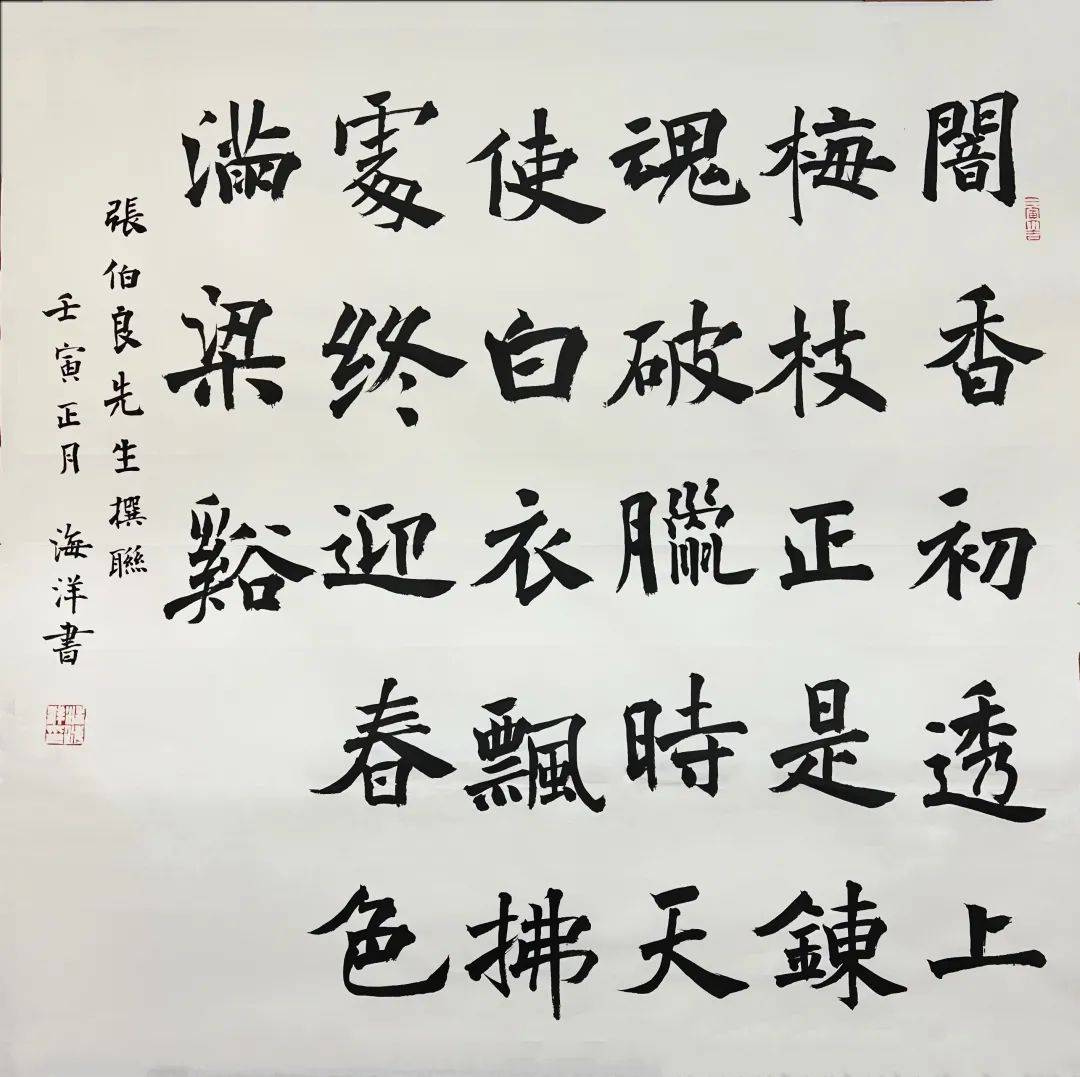 闇香初透上
梅枝正是鍊
魂破臘時天
使白衣飄拂
處終迎春色
滿梁谿
張伯良先生撰聯
壬寅正月 海洋書